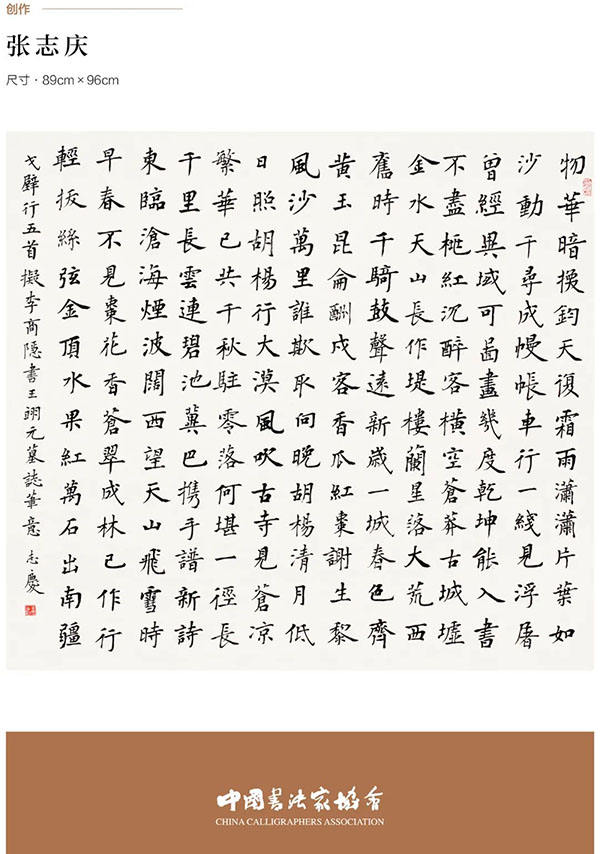 创作
张志庆
尺寸 · 89cm × 96cm
物華暗換鈞天復霜雨瀟瀟片葉如
沙動千尋成幔帳車行一綫見浮屠
曾經異域可啚畫幾度乾坤能入書
不盡桃紅沉醉客橫空蒼莽古城墟
金水天山長作堤樓蘭星落大荒西
舊時千騎鼓聲遠新歲一城春色齊
黃玉昆侖酬戍客香瓜紅棗謝生黎
風沙萬里誰欺取向晚胡楊清月低
日照胡楊行大漠風吹古寺見蒼凉
繁華已共千秋駐零落何堪一徑長
千里長雲連碧池冀巴携手譜新詩
東臨滄海煙波闊西望天山飛雪時
早春不見棗花香蒼翠成林已作行
輕拔絲弦金頂水果紅萬石出南疆
戈壁行五首擬李商隱書王翊元墓誌筆意 志慶
中國書法家協會
CHINA CALLIGRAPHERS ASSOCIATION